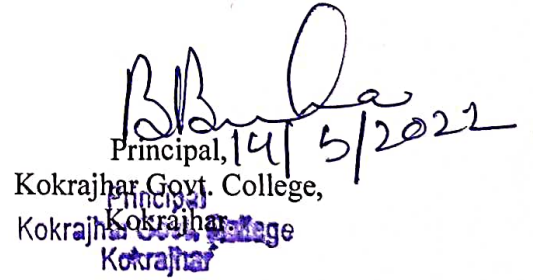 14/5/2022
Principal,
Kokrajhar Govt. College,
Kokrajhar.
Principal
Kokrajhar Govt. College
Kokrajhar